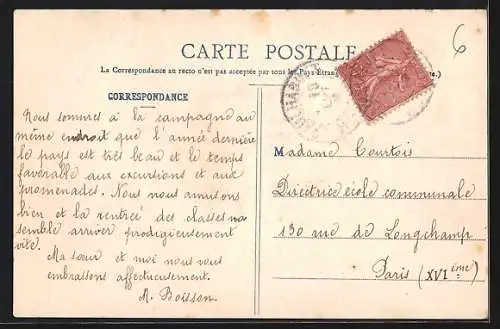 CARTE POSTALE
La Correspondance au recto n'est pas acceptée par tous les Pays Etran
te.)
6
CORRESPONDANCE
Nous sommes à la campagne au
même endroit que l'année dernière
le pays est très beau et le temps
favorable aux excursions et aux
promenades. Nous nous amusons
bien et la rentrée des classes me
semble arriver prodigieusement
vite.
Ma sœur et moi nous vous
embrassons affectueusement.
M. Boisson.
Madame Courtois
Directrice école communale
130 rue de Longchamp
Paris (XVIème)